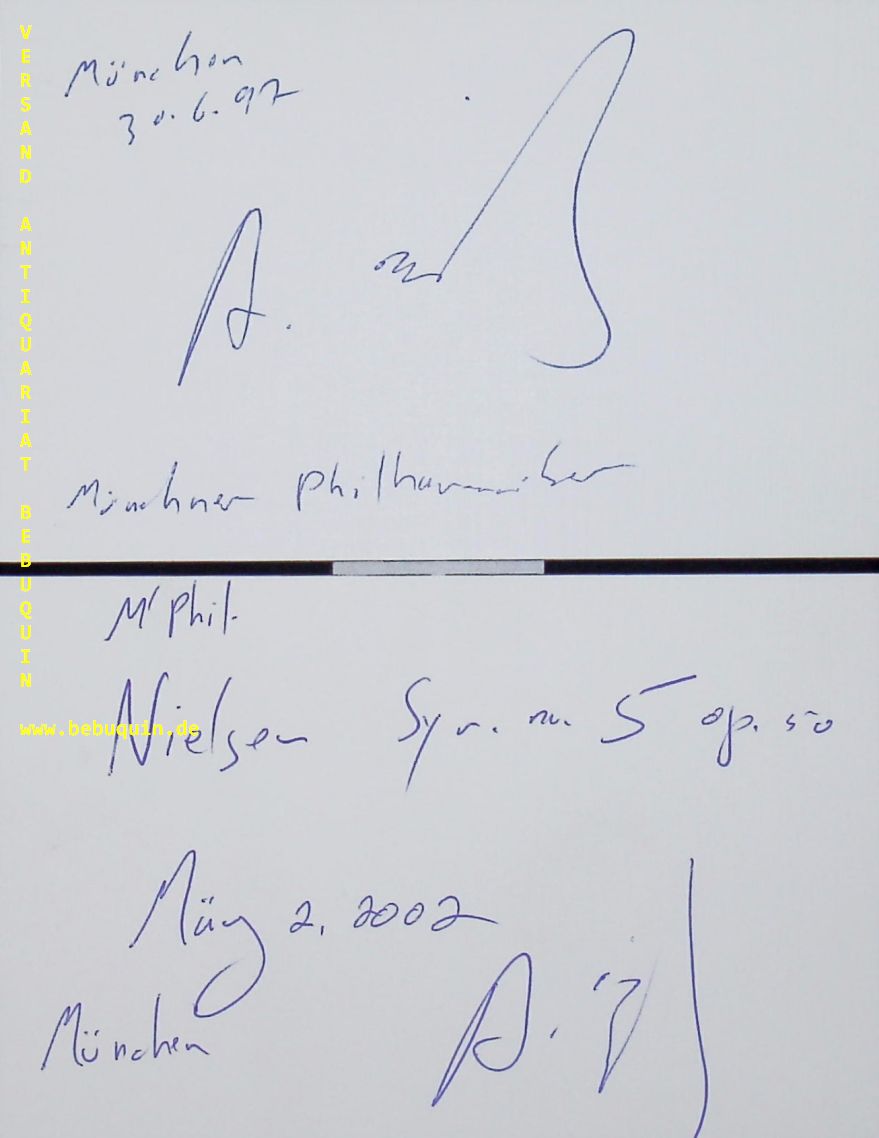 München
30.6.97
A.
Münchner Philharmoniker
M'Phil.
Nielsen Sym. nr. 5 op. 50
März 2, 2002
München
A.
VERSAND ANTIQUARIAT BEBUQUIN
www.bebuquin.de